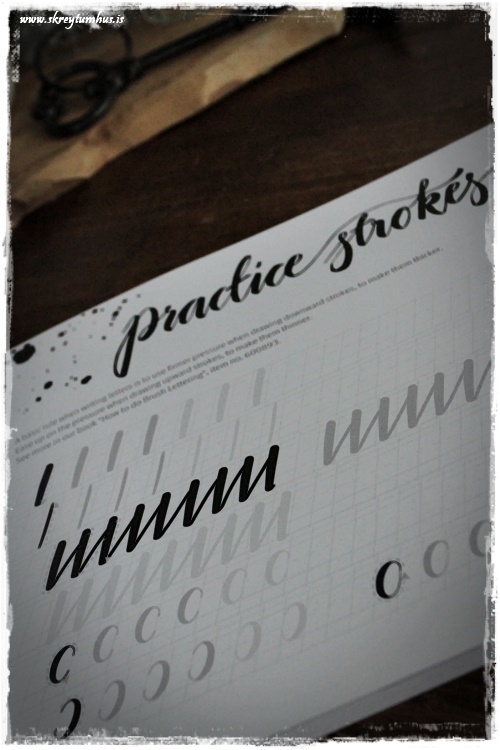 www.skreytumhus.is
practice strokes
A basic rule when writing letters is to use firmer pressure when drawing downward strokes, to make them thicker.
Ease up on the pressure when drawing upward strokes, to make them thinner.
See more in our book "How to do Brush Lettering", item no. 600893